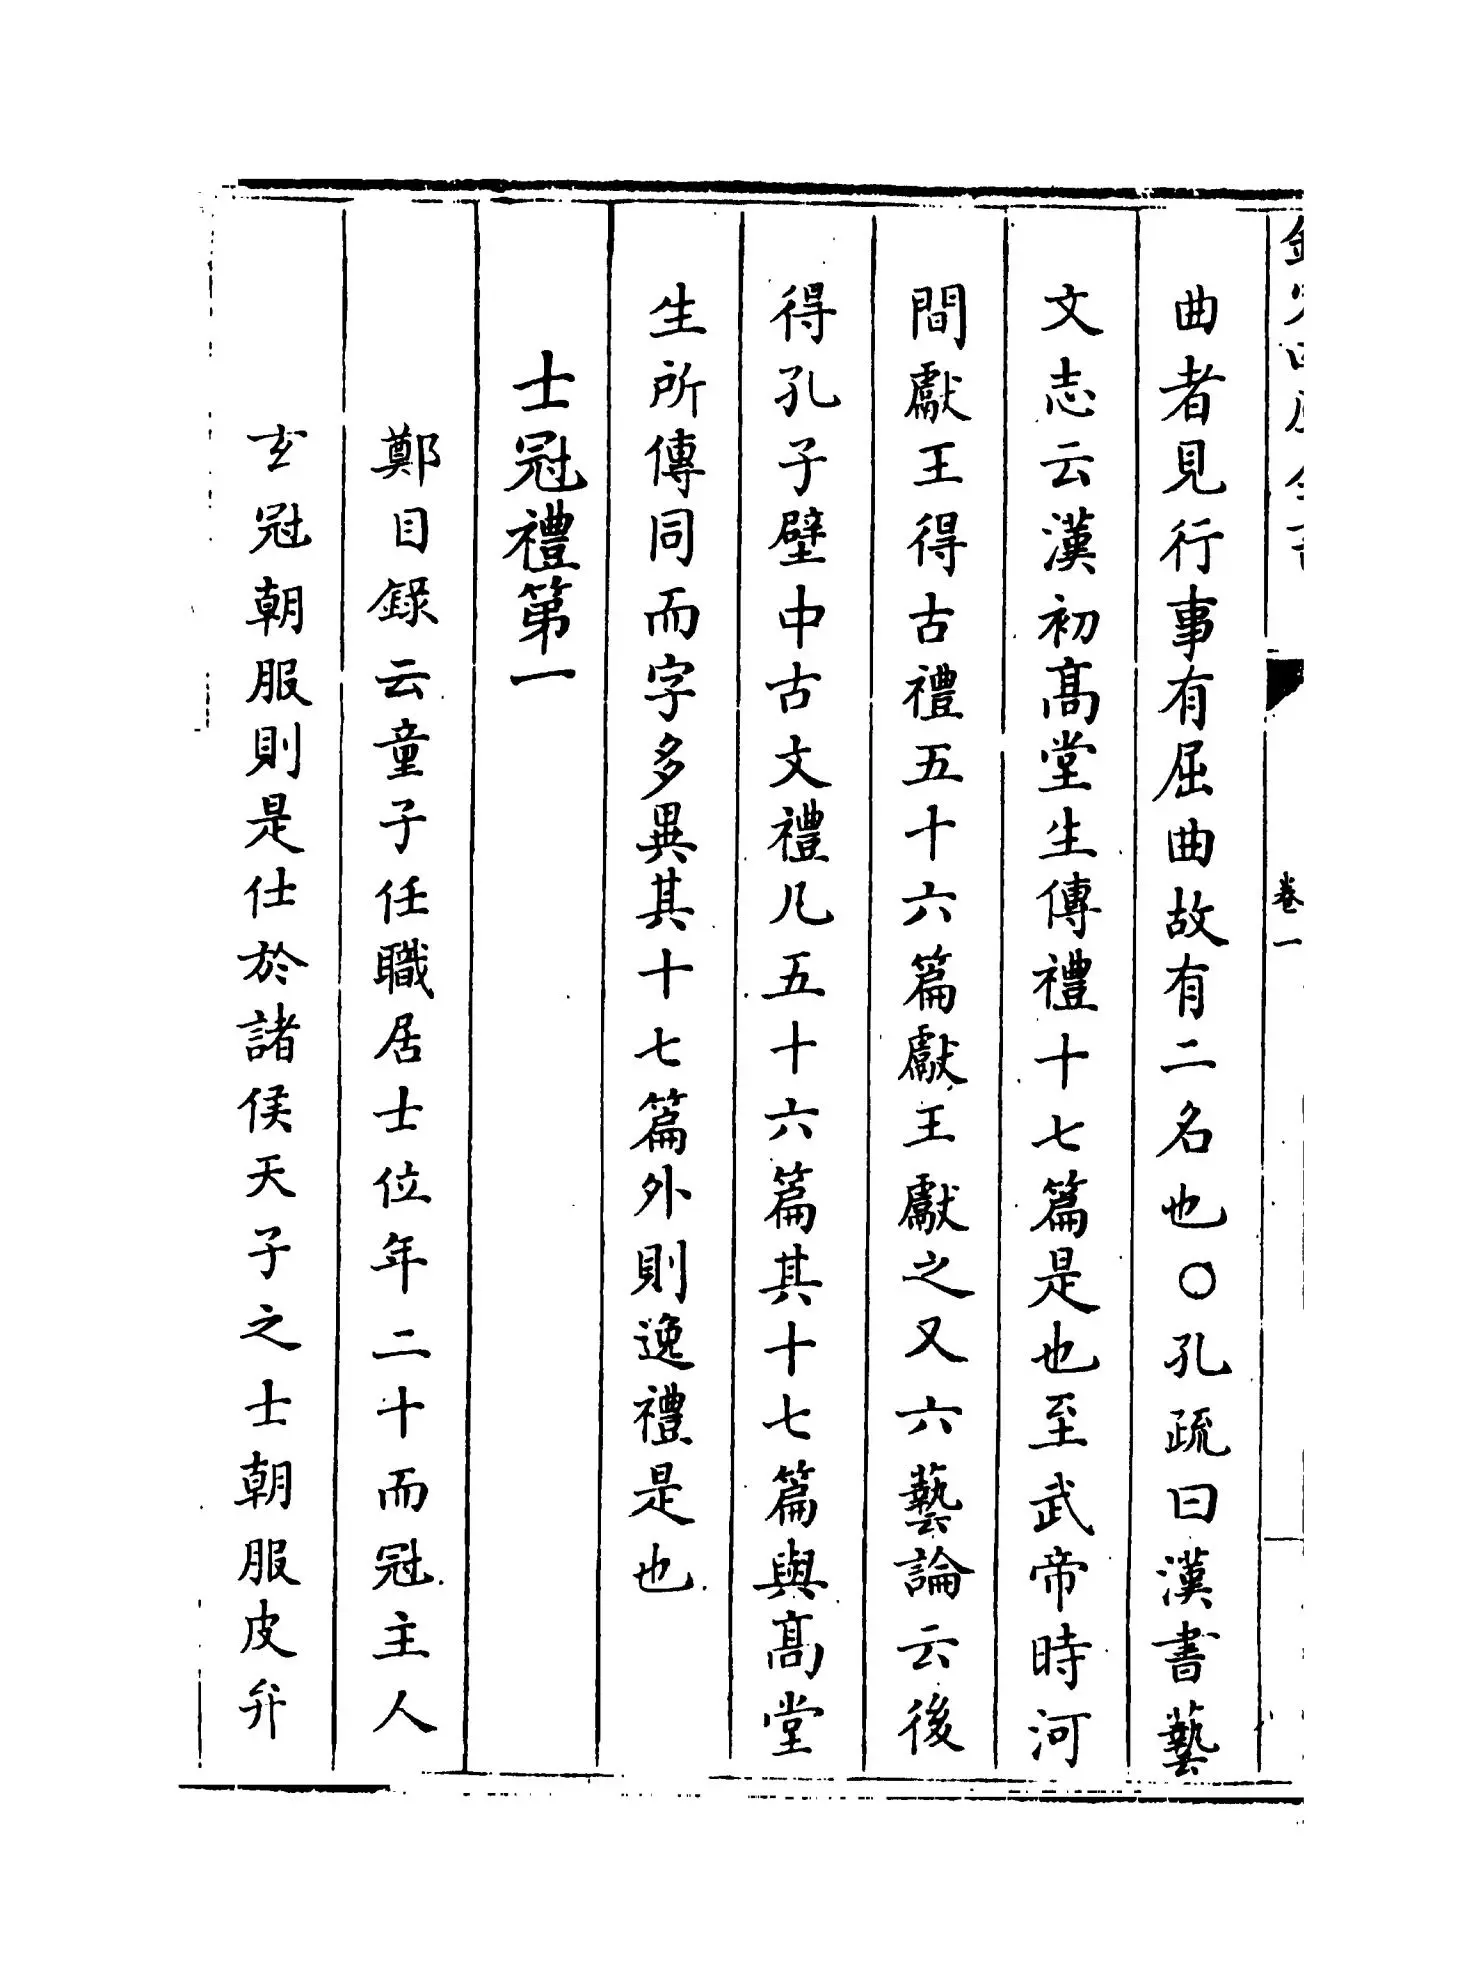 曲者見行事有屈曲故有二名也○孔疏曰漢書藝
文志云漢初髙堂生傳禮十七篇是也至武帝時河
間獻王得古禮五十六篇獻王獻之又六藝論云後
得孔子壁中古文禮凡五十六篇其十七篇與髙堂
生所傳同而字多異其十七篇外則逸禮是也
士冠禮第一
鄭目録云童子任職居士位年二十而冠主人
玄冠朝服則是仕於諸侯天子之士朝服皮弁
卷一